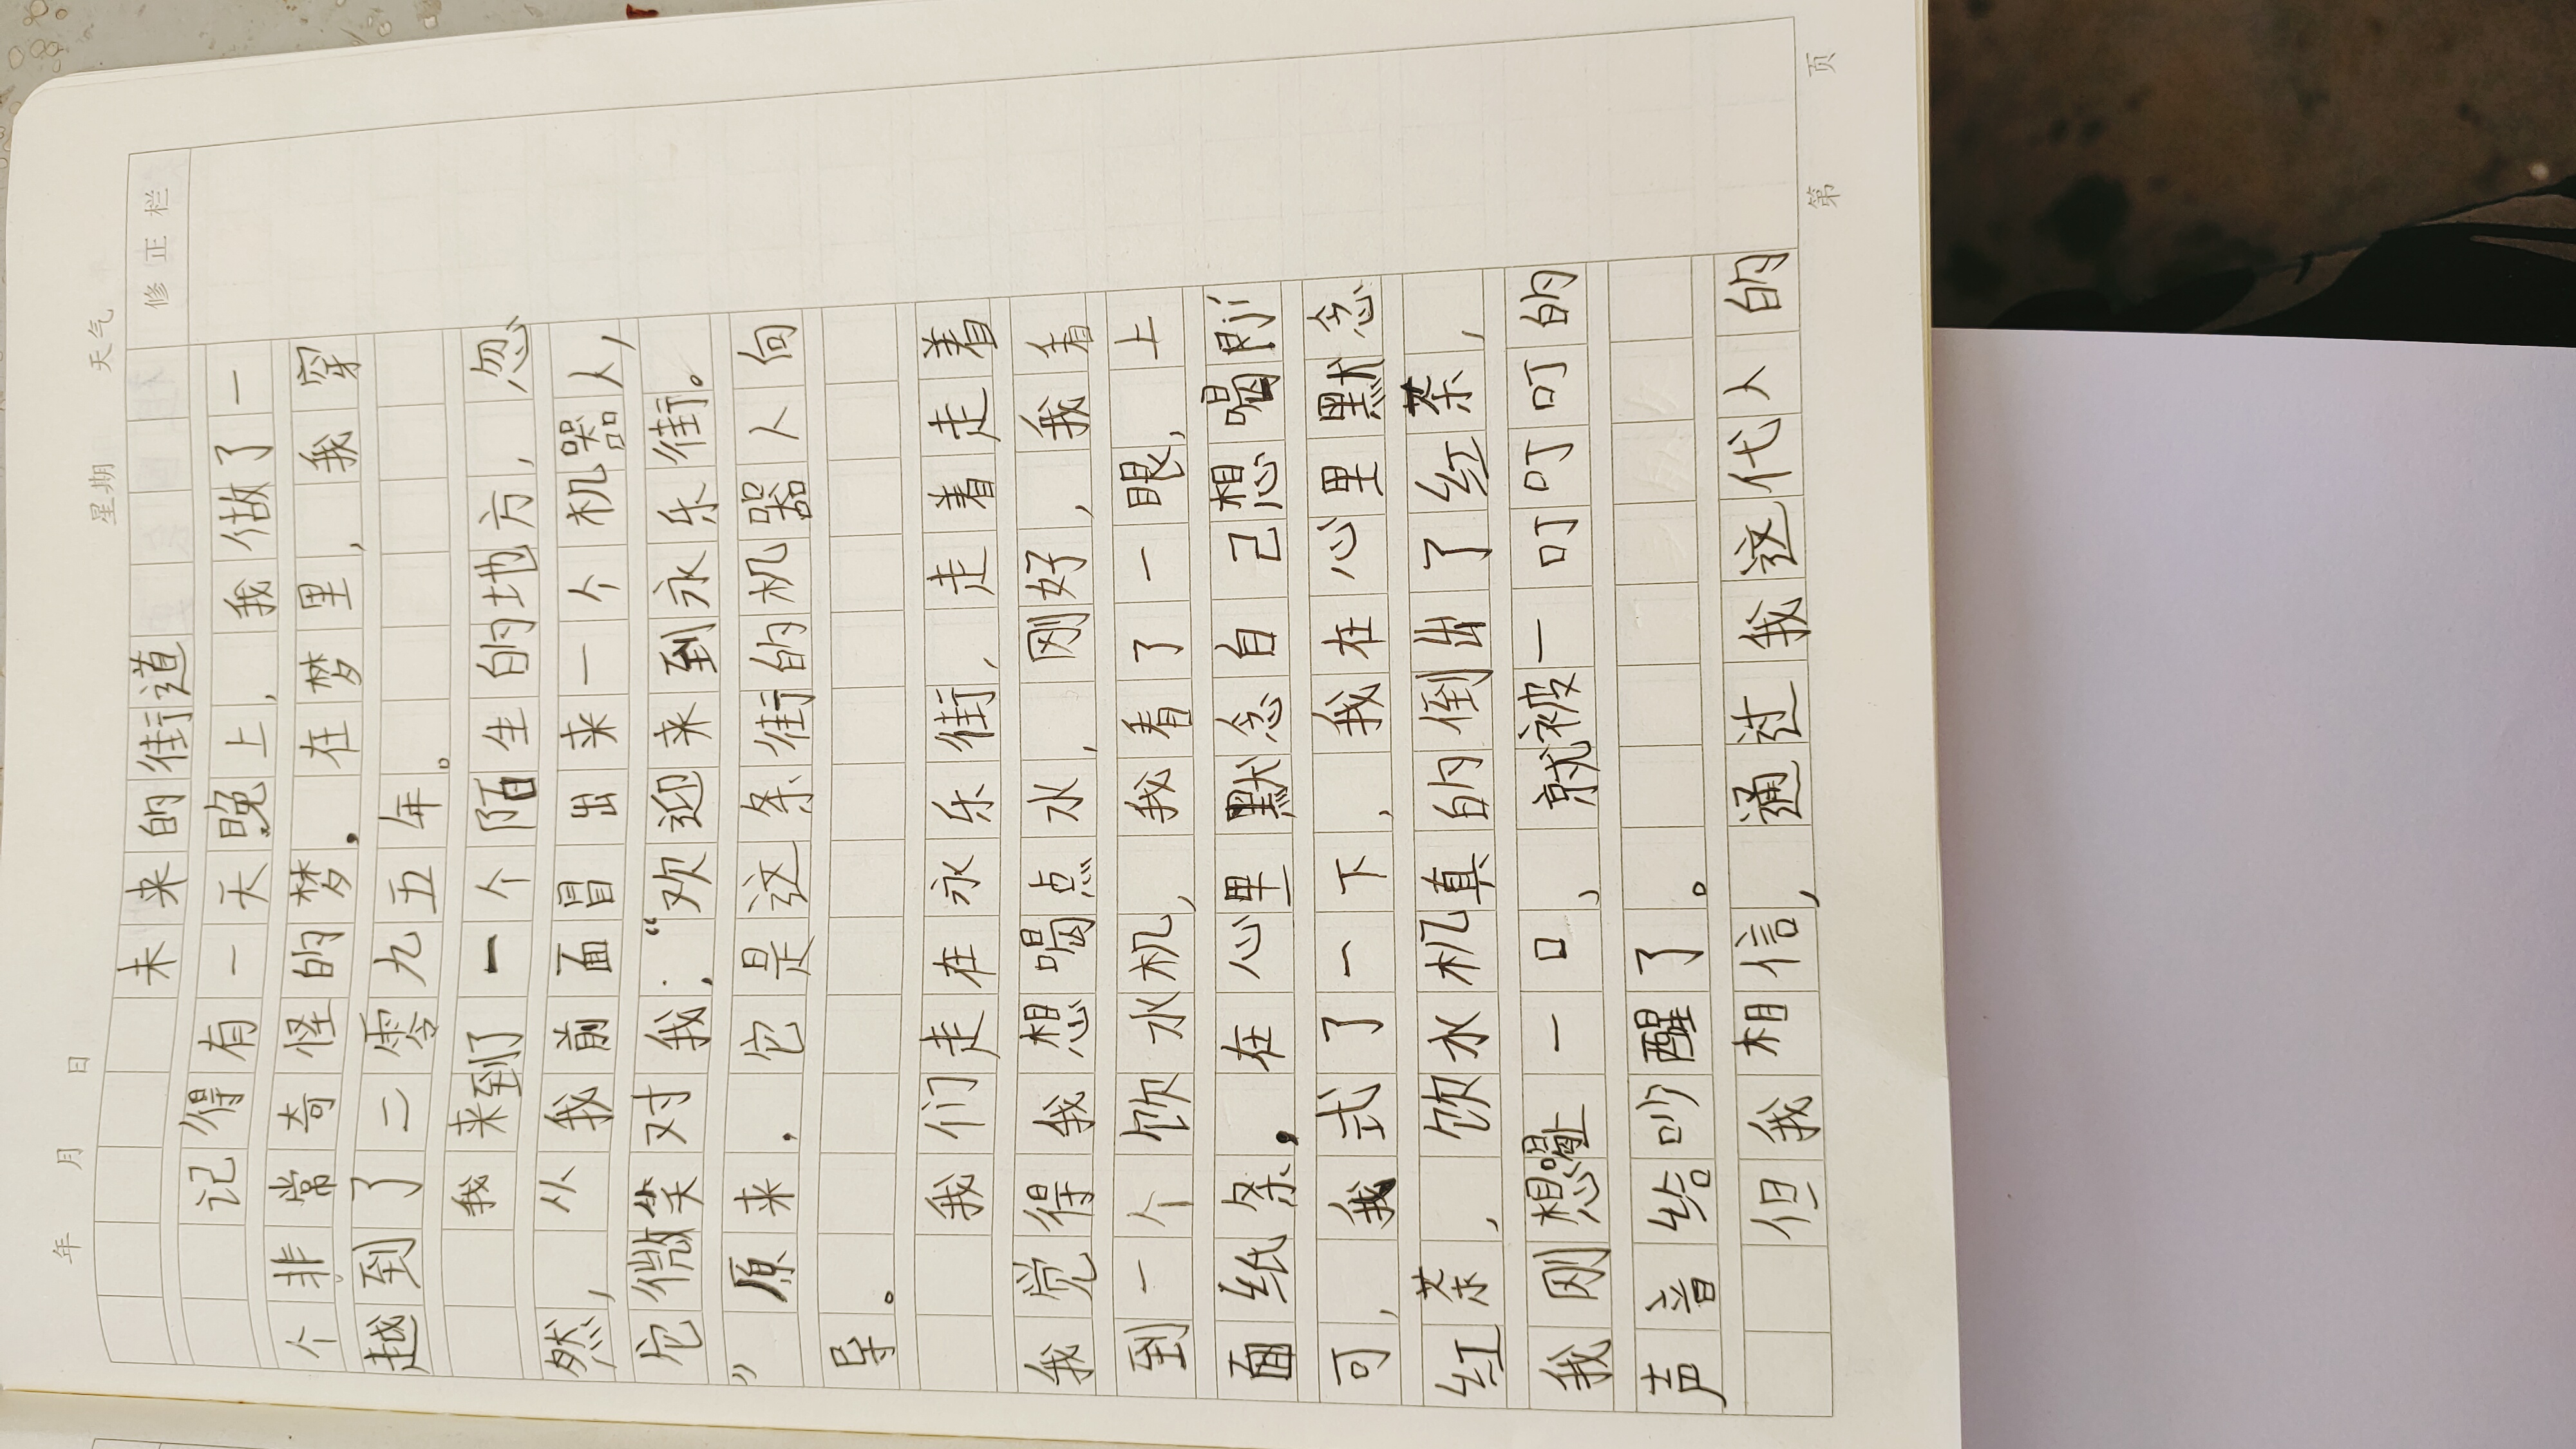 年 月 日 星期 天气
未来的街道 修正栏
记得有一天晚上，我做了一
个非常奇怪的梦，在梦里，我穿
越到了二零九五年。
我来到了一个陌生的地方，忽
然，从我前面冒出来一个机器人，
它微笑对我：“欢迎来到永乐街。
”原来，它是这条街的机器人向
导。
我们走在永乐街，走着走着
我觉得我想喝点水，刚好，我看
到一个饮水机，我看了一眼，上
面纸条，在心里默念自己想喝刚
可，我式了一下，我在心里默念
红茶，饮水机真的倒出了红茶，
我刚想嘬一口，就被一叮叮叮的
声音给吵醒了。
但我相信，通过我这代人的
第 页